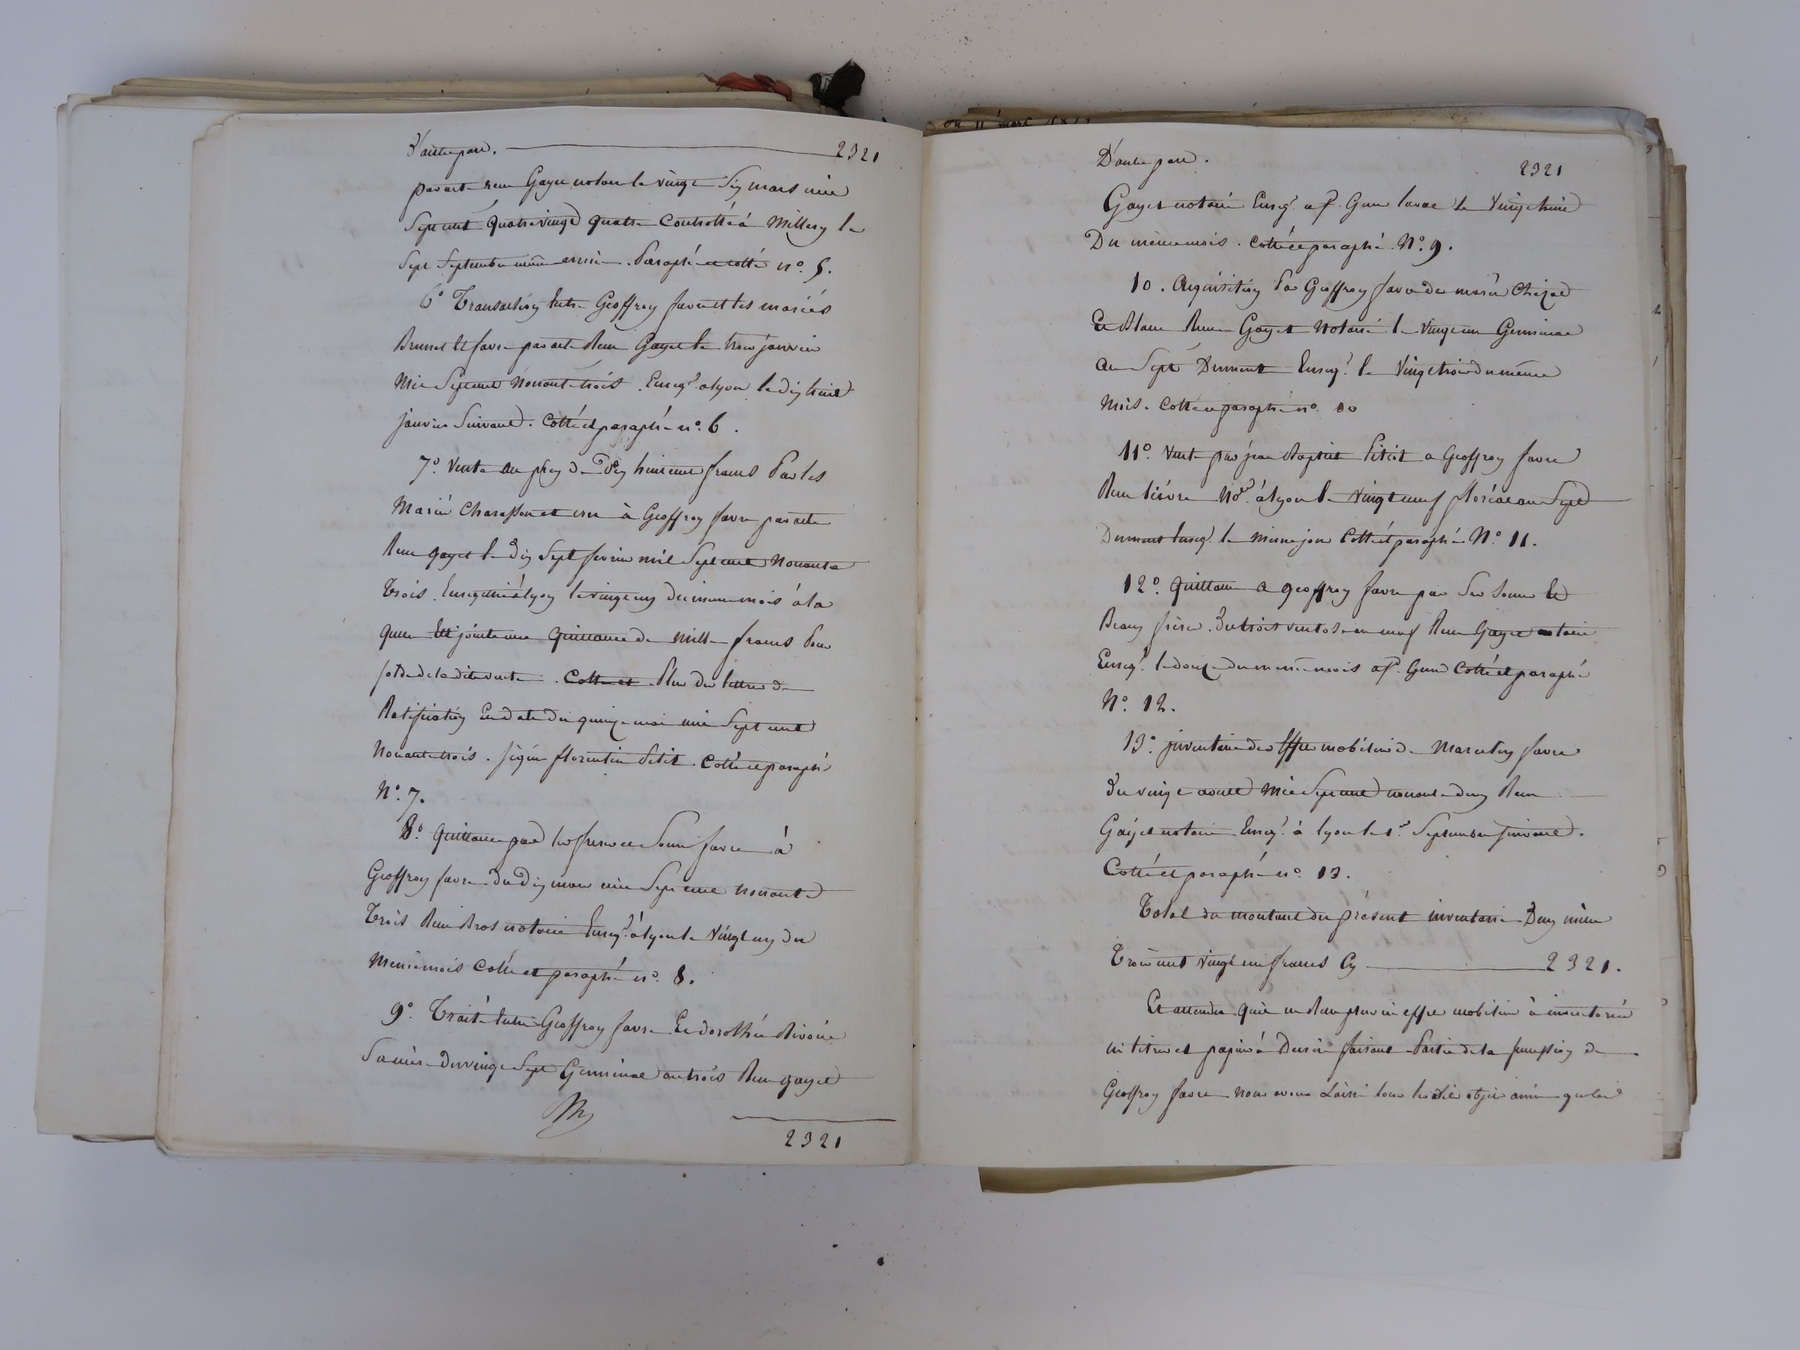 D'autre part. 2321
par acte reçu Gayet notaire le vingt six mars mil
Sept cent quatre vingt quatre Controllé à Millery le
Sept Septembre même année. Paraphé et cotté n°. 5.
6° Transaction Entre Geoffroy favre et les mariés
Brunet et favre par acte Reçu Gayet le trois janvier
Mil Sept cent Nonante trois. Enreg.é a lyon le dix huit
janvier Suivant. Cotté et paraphé n°. 6.
7° Vente au prix de Dix huit cent francs Par les
Mariés Charasson et à Geoffroy favre par acte
Reçu gayet le Dix Sept fevrier mil Sept cent Nonante
Trois. Enregistré à lyon le vingt cinq du même mois à la
quelle Est jointe une Quittance de Mille francs Pour
solde de la dite vente. Cotté et Plus des lettres de
Ratification En date du quinze mai mil Sept cent
Nonante trois. Signé florentin Petit. Cotté et paraphé
N°. 7.
8° Quittance par les freres et Soeurs favre à
Geoffroy favre du Dix mars mil Sept cent nonante
Trois Reçu Bros notaire Enreg.é à lyon le Vingt cinq du
Même mois Cotté et paraphé n°. 8.
9° Traité Entre Geoffroy favre Et dorothée Rivoire
Sa mère Du vingt Sept Germinal an trois Reçu gayet
2321
D'autre part. 2321
Gayet notaire Enreg.é a s.t Genis laval le Vingt huit
Du même mois. Cotté et paraphé. N°. 9.
10. Acquisition Par Geoffroy favre de marie Chizat
Et Blanc Reçu Gayet Notaire le Vingt un Germinal
an Sept Devement Enreg.é le Vingt trois du même
Mois. Cotté et paraphé n°. 10
11°. Vente par jean Baptiste Petit a Geoffroy favre
Reçu lièvre No.re à lyon le vingt neuf floréal an Sept
Devement Enreg.é le même jour Cotté et paraphé N°. 11.
12°. Quittance a Geoffroy favre par Ses Soeurs Et
Beaux frères. Du trois ventose an neuf Reçu Gayet notaire
Enreg.é le douze du même mois a s.t Genis Cotté et paraphé
N°. 12.
13°. jnventaire des Effets mobiliers de Marcelin favre
du vingt aoust Mil Sept cent nonante deux Reçu
Gayet notaire Enreg.é à lyon le 1.er Septembre Suivant.
Cotté et paraphé n°. 13.
Total du montant du présent inventaire Deux mille
Trois cent vingt un francs Cy 2321.
Et attendu qu'il ne Reste plus ni effets mobiliers à inventorier
ni titres et papiers à Décrire faisant Partie de la succession de
Geoffroy favre nous avons Laissé tous les dits objets ainsi que les